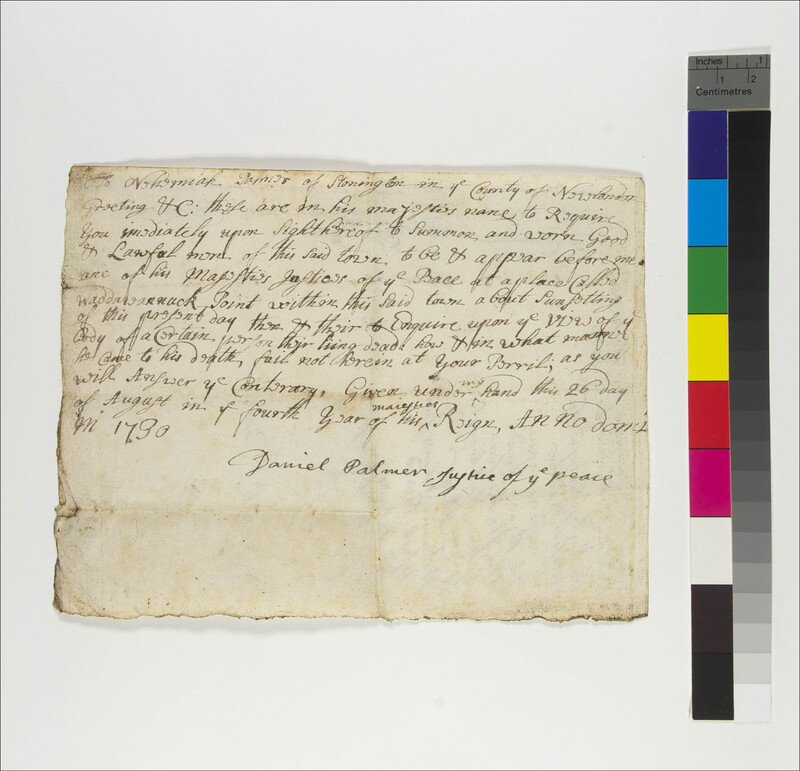 To Nehemiah Palmer of Stonington in ye County of Newlondon
Greeting &C: these are in his majesties name to Require
You imediately upon Sight hereof to Summon and worn Good
& Lawful men of this said town to be & appear before me
one of his Majesties Justices of ye Peace at a place Called
Waddawannuck Point within this Said town about Sunsetting
of this present day then & their to Enquire upon ye View of ye
body of a Certain person their liing dead: how & in what manner
he Came to his death, fail not herein at Your Perril, as you
will Answer ye Conterary, Given under my hand this 26 day
of August in ye fourth Year of his majesties Reign, Anno domi
ni 1730
Daniel Palmer Justice of ye peace
Inches 1
1 2
Centimetres